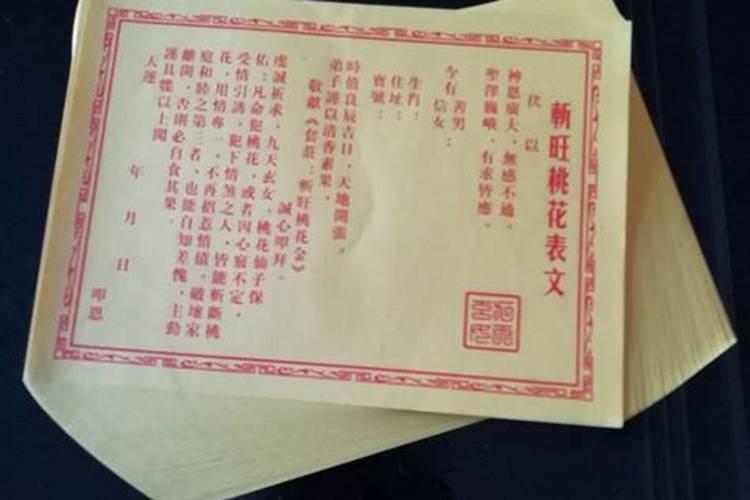 斬旺桃花表文
伏以
神恩廣大，無感不通。
聖澤巍峨，有求皆應。
今有善男：
信女：
生肖：
住址：
寶號：
時值良辰吉日，天地開張。
弟子謹以清香素果，
敬獻《套莊：斬旺桃花金》
誠心叩拜。
虔誠祈求，九天玄女、桃花仙子保
佑：凡命犯桃花，或者因心竅不定，
受情引誘，犯下情煞之人，皆能斬斷桃
花，用情專一，不再招惹情債。破壞家
庭和睦之第三者，也能自知羞愧，主動
離開，否則必自食其果。
謹具牒以上聞
天運　年　月　日　叩恩